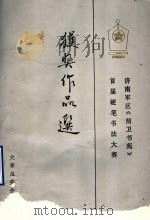 济南军区《前卫书苑》
首届硬笔书法大赛
獲奬作品選